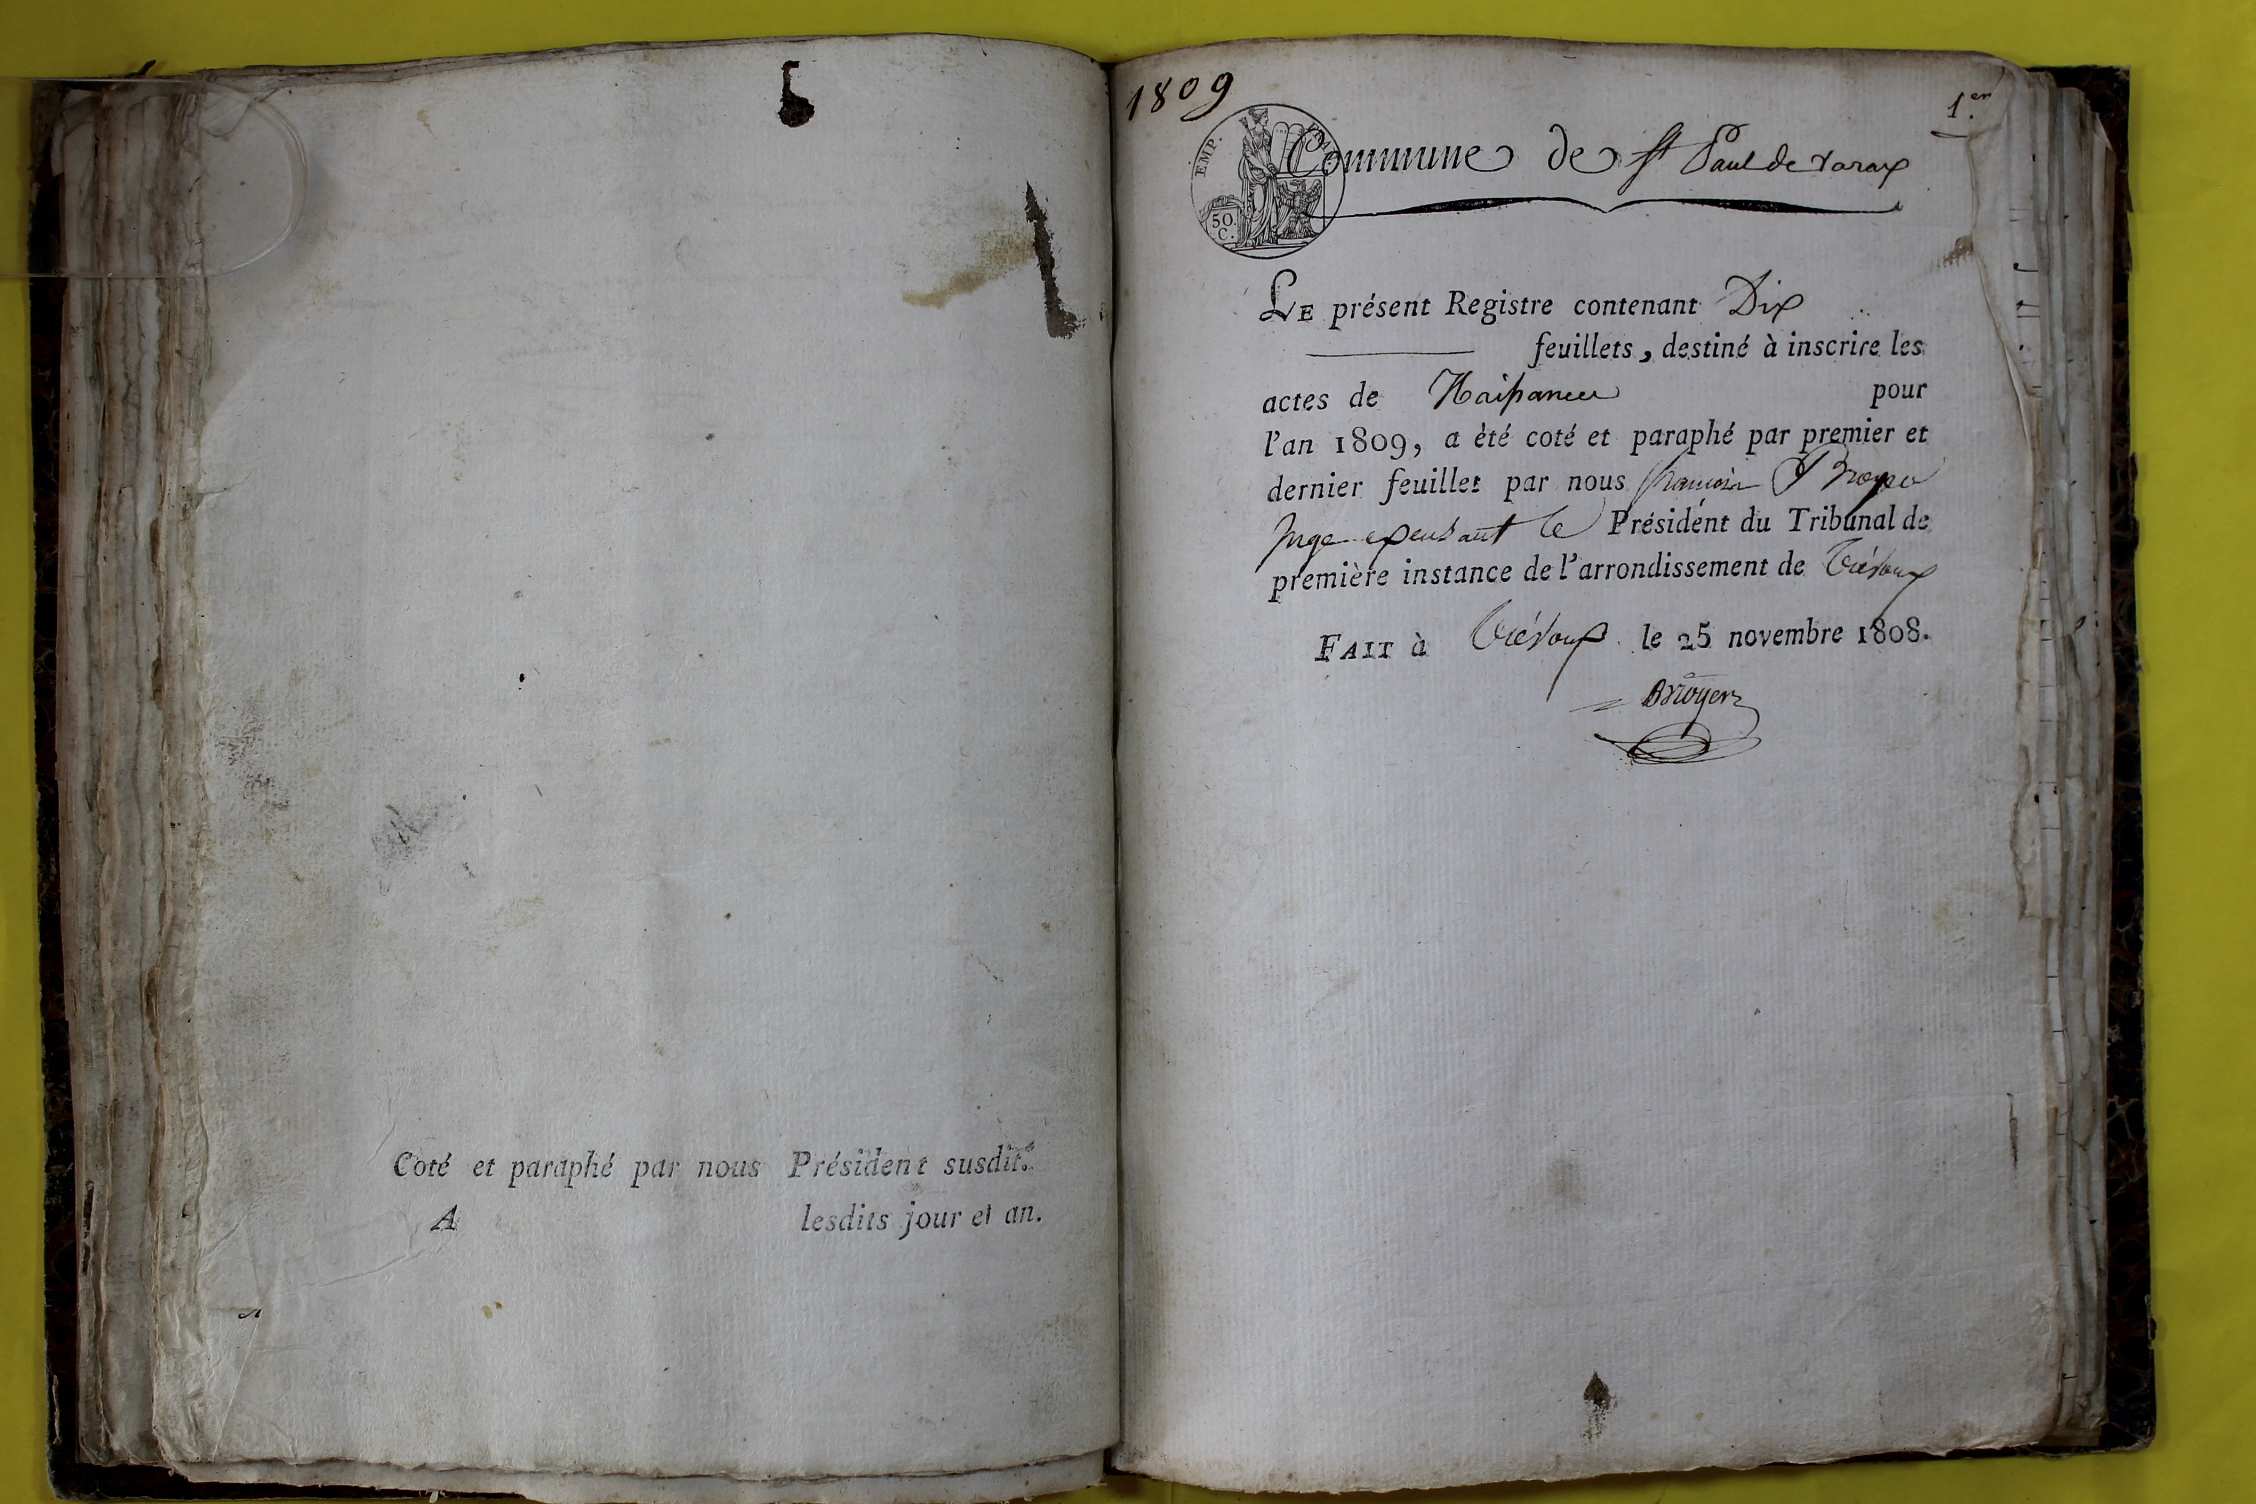 Coté et paraphé par nous Président susdit.
A lesdits jour et an.
1809
1.er
EMP.
50
C.
Commune de St Paul de varax
LE présent Registre contenant Dix
feuillets, destiné à inscrire les
actes de Naissances pour
l'an 1809, a èté coté et paraphé par premier et
dernier feuillet par nous françois Broyer
Juge expeusant le Président du Tribunal de
première instance de l'arrondissement de Trévoux
FAIT à Trévoux le 25 novembre 1808.
Broyer